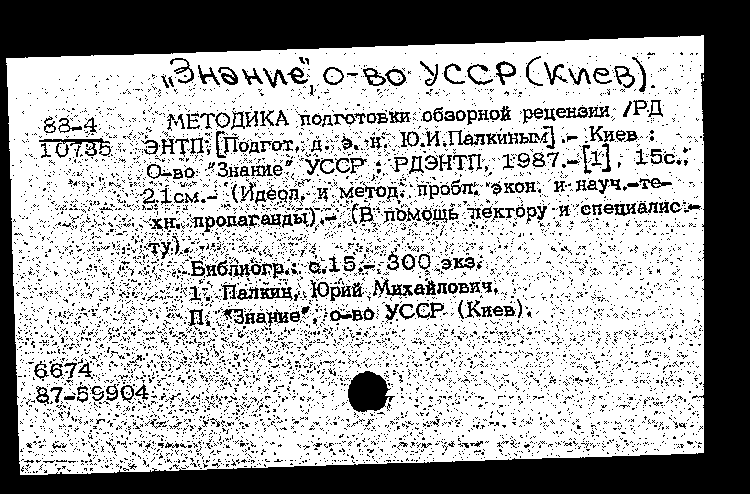 „Знание", о-во УССР (Киев).
88-4
10735
МЕТОДИКА подготовки обзорной рецензии /РД
ЭНТП; [Подгот. д. э. н. Ю.И.Палкиным] .- Киев :
О-во "Знание" УССР : РДЭНТП, 1987.-[1], 15с.;
21см.- (Идеол. и метод. пробл. экон. и науч.-те-
хн. пропаганды).- (В помощь лектору и специалис-
ту).
Библиогр.: с.15.- 300 экз.
1. Палкин, Юрий Михайлович.
П. "Знание", о-во УССР (Киев).
6674
87-59904